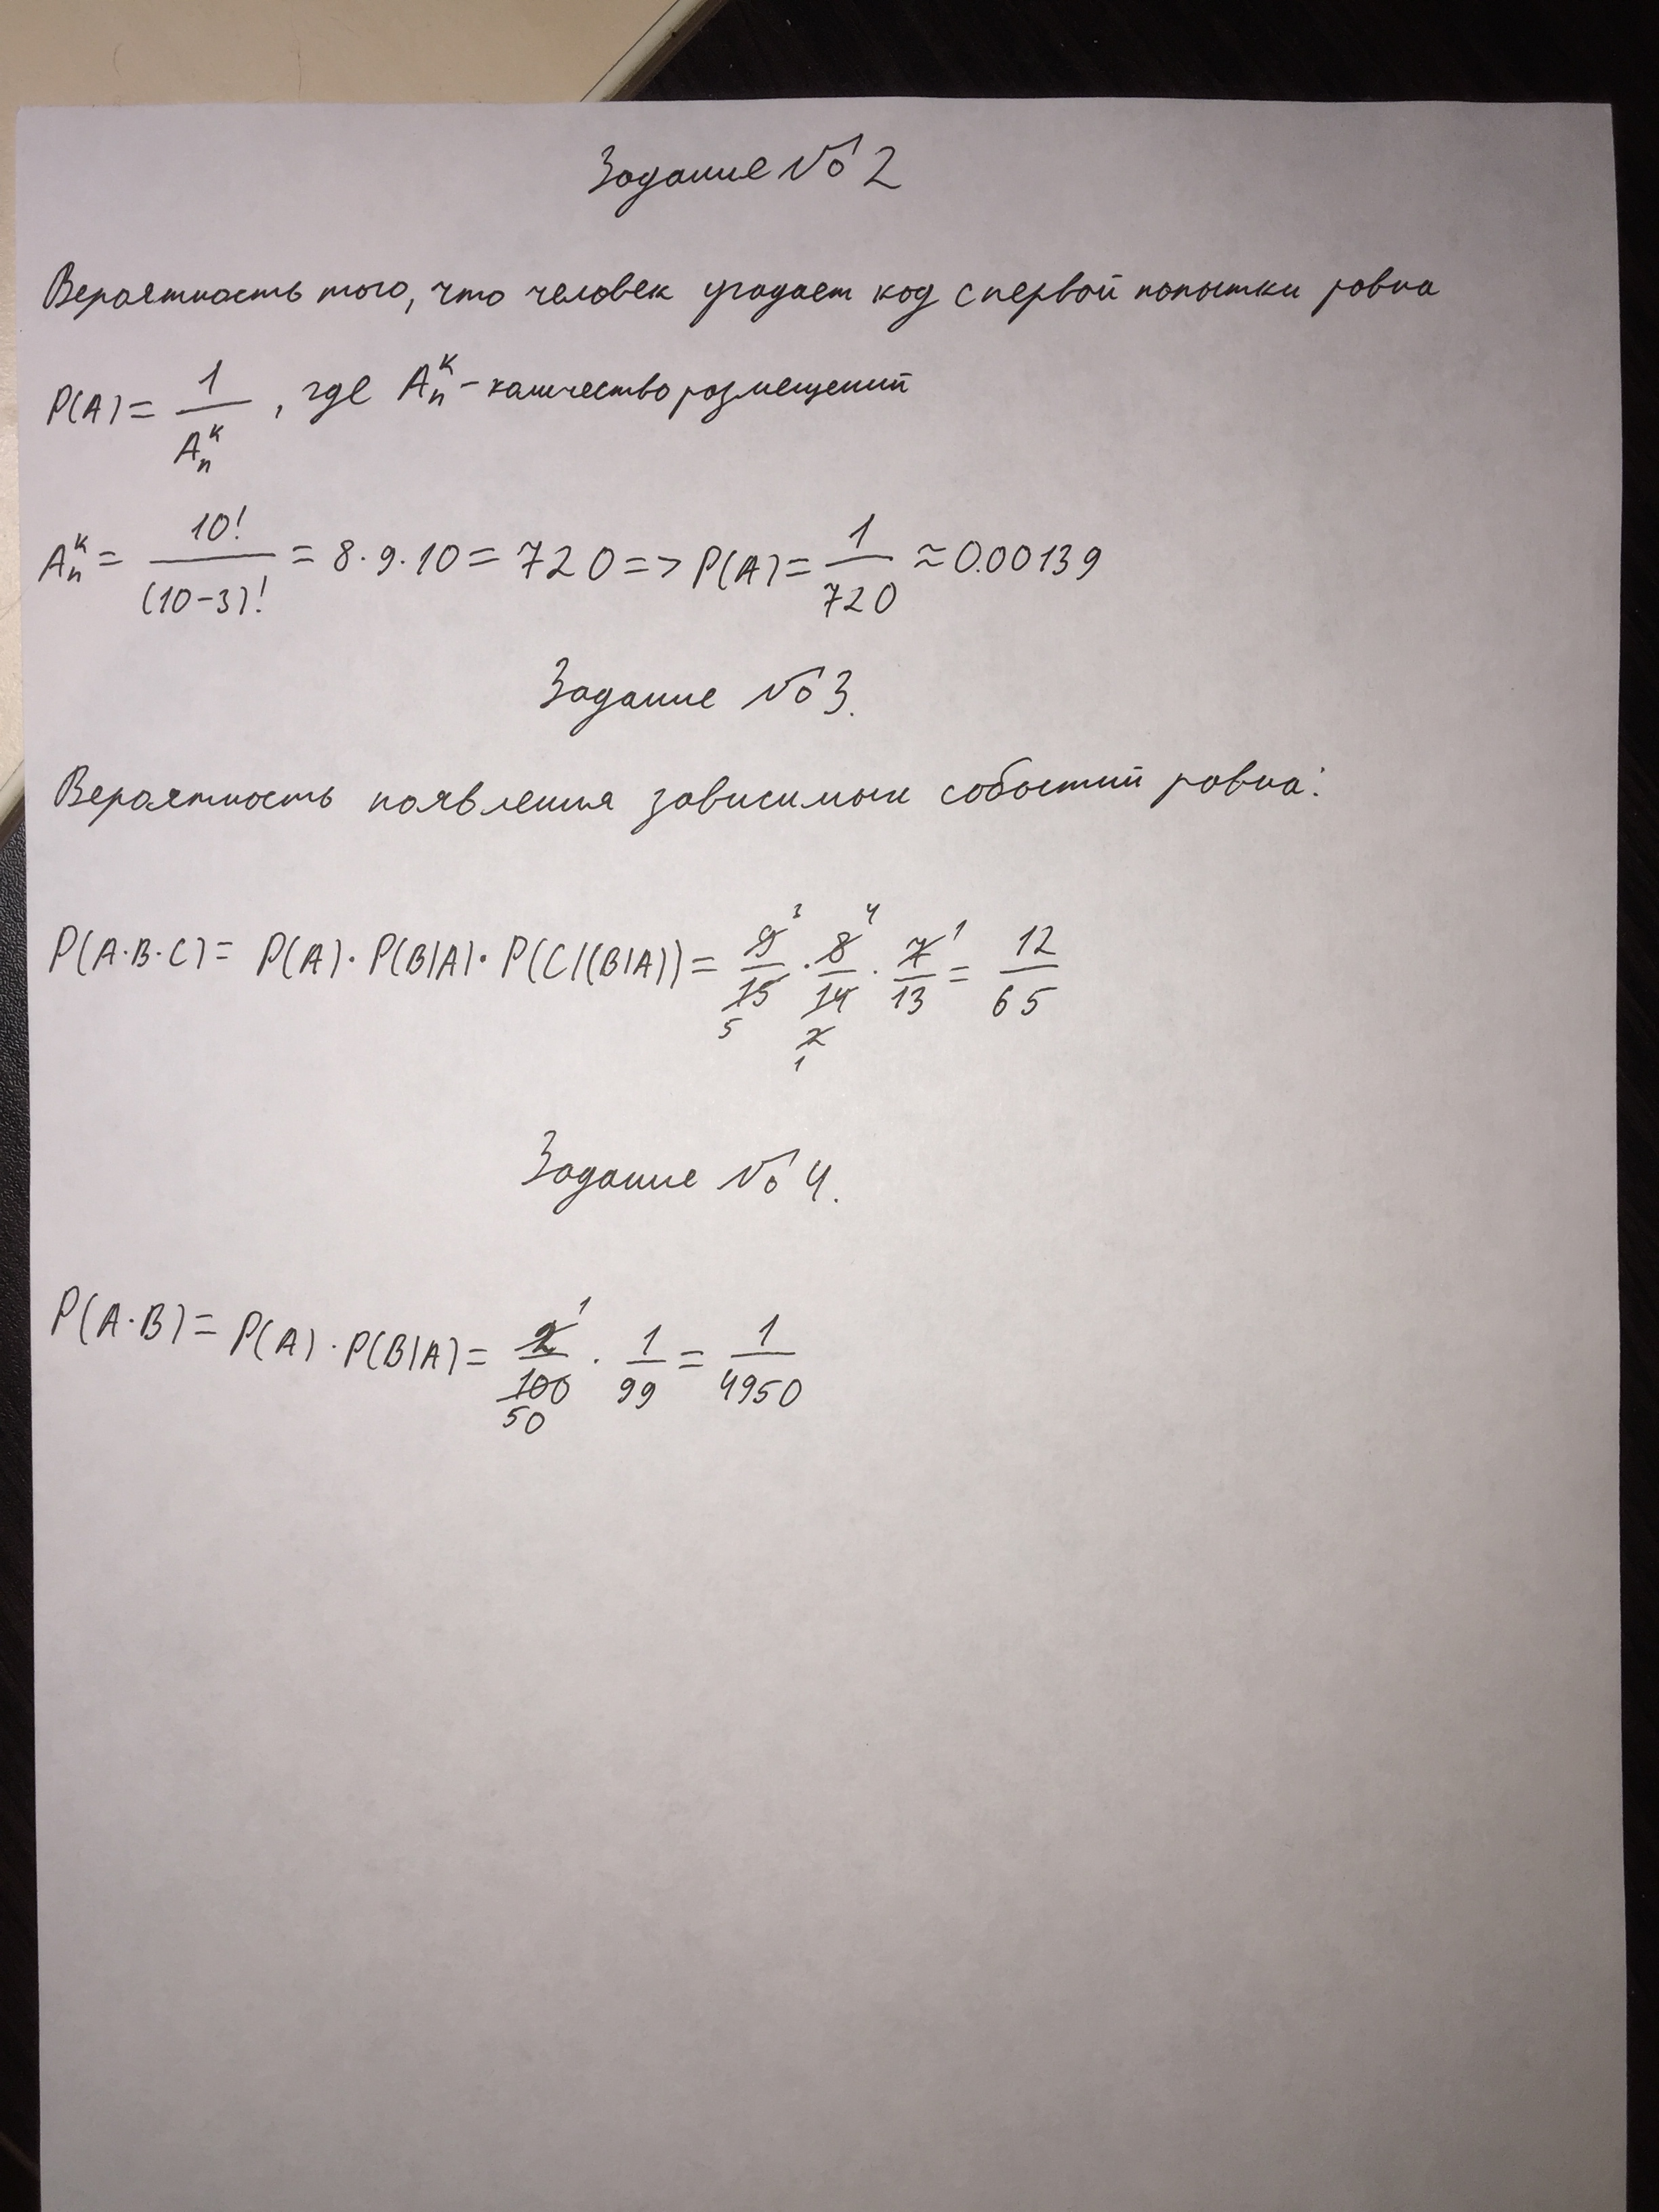 Задание №2
Вероятность того, что человек угадает код с первой попытки равна
P(A) = 1/Aₙᵏ, где Aₙᵏ - количество размещений
Aₙᵏ = 10!/(10-3)! = 8·9·10 = 720 => P(A) = 1/720 ≈ 0.00139
Задание №3.
Вероятность появления зависимых событий равна:
P(A·B·C) = P(A)·P(B|A)·P(C|(B|A)) = 9/15 · 8/14 · 7/13 = 12/65
Задание №4.
P(A·B) = P(A)·P(B|A) = 2/100 · 1/99 = 1/4950